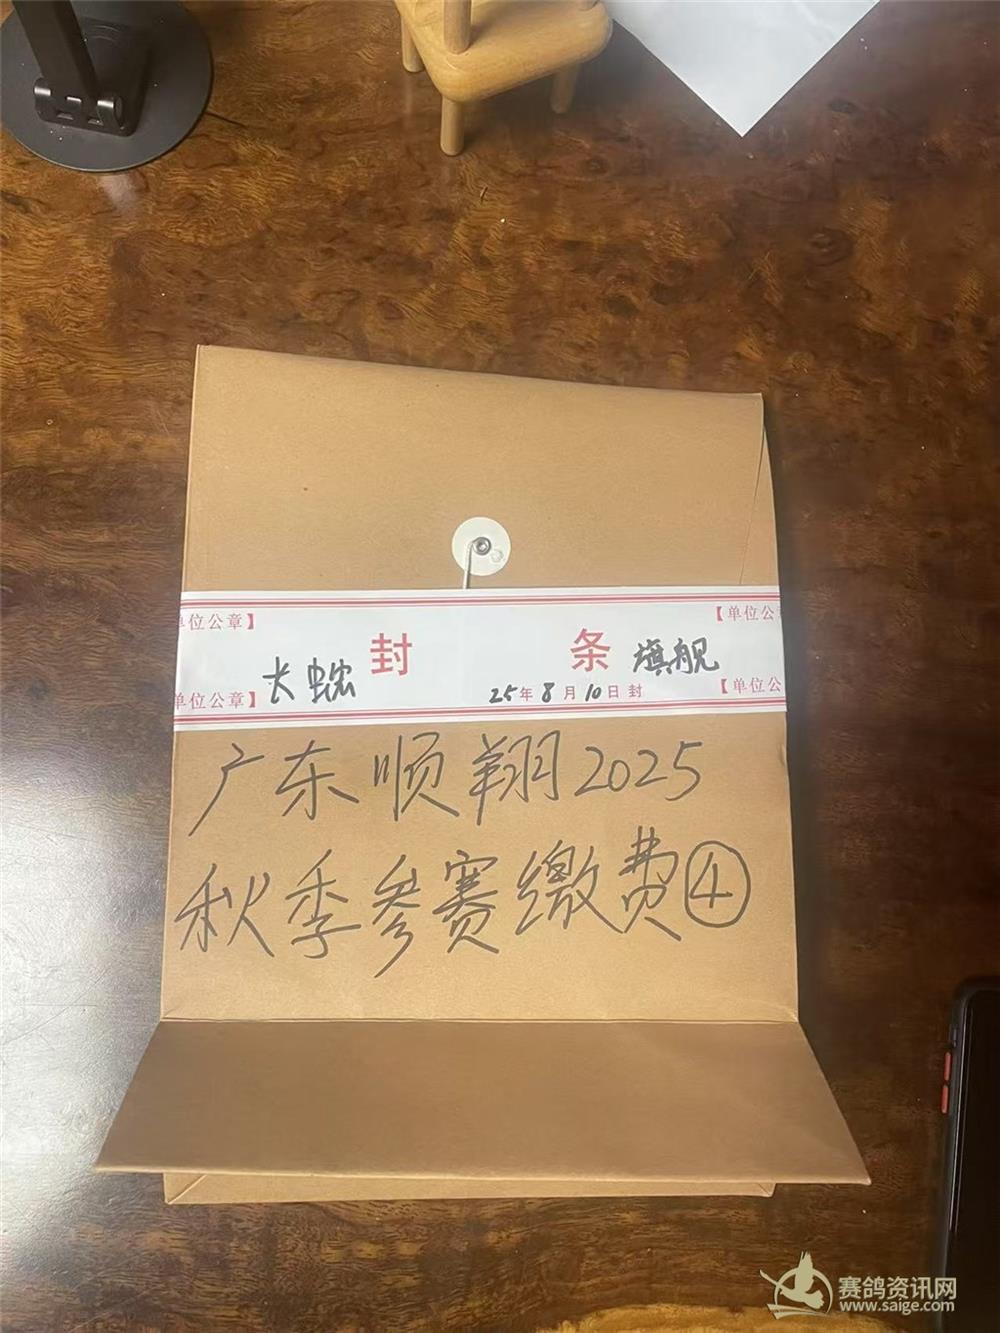 单位公章】
【单位公
封 条
长 旗舰
25年8月10日封
单位公章】
【单位公
广东顺翔2025
秋季参赛缴费④
赛鸽资讯网
www.saige.com